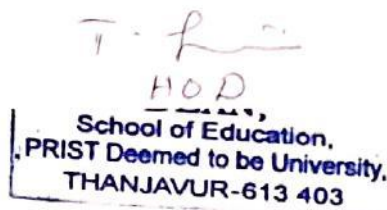 HOD
DEAN,
School of Education,
PRIST Deemed to be University,
THANJAVUR-613 403